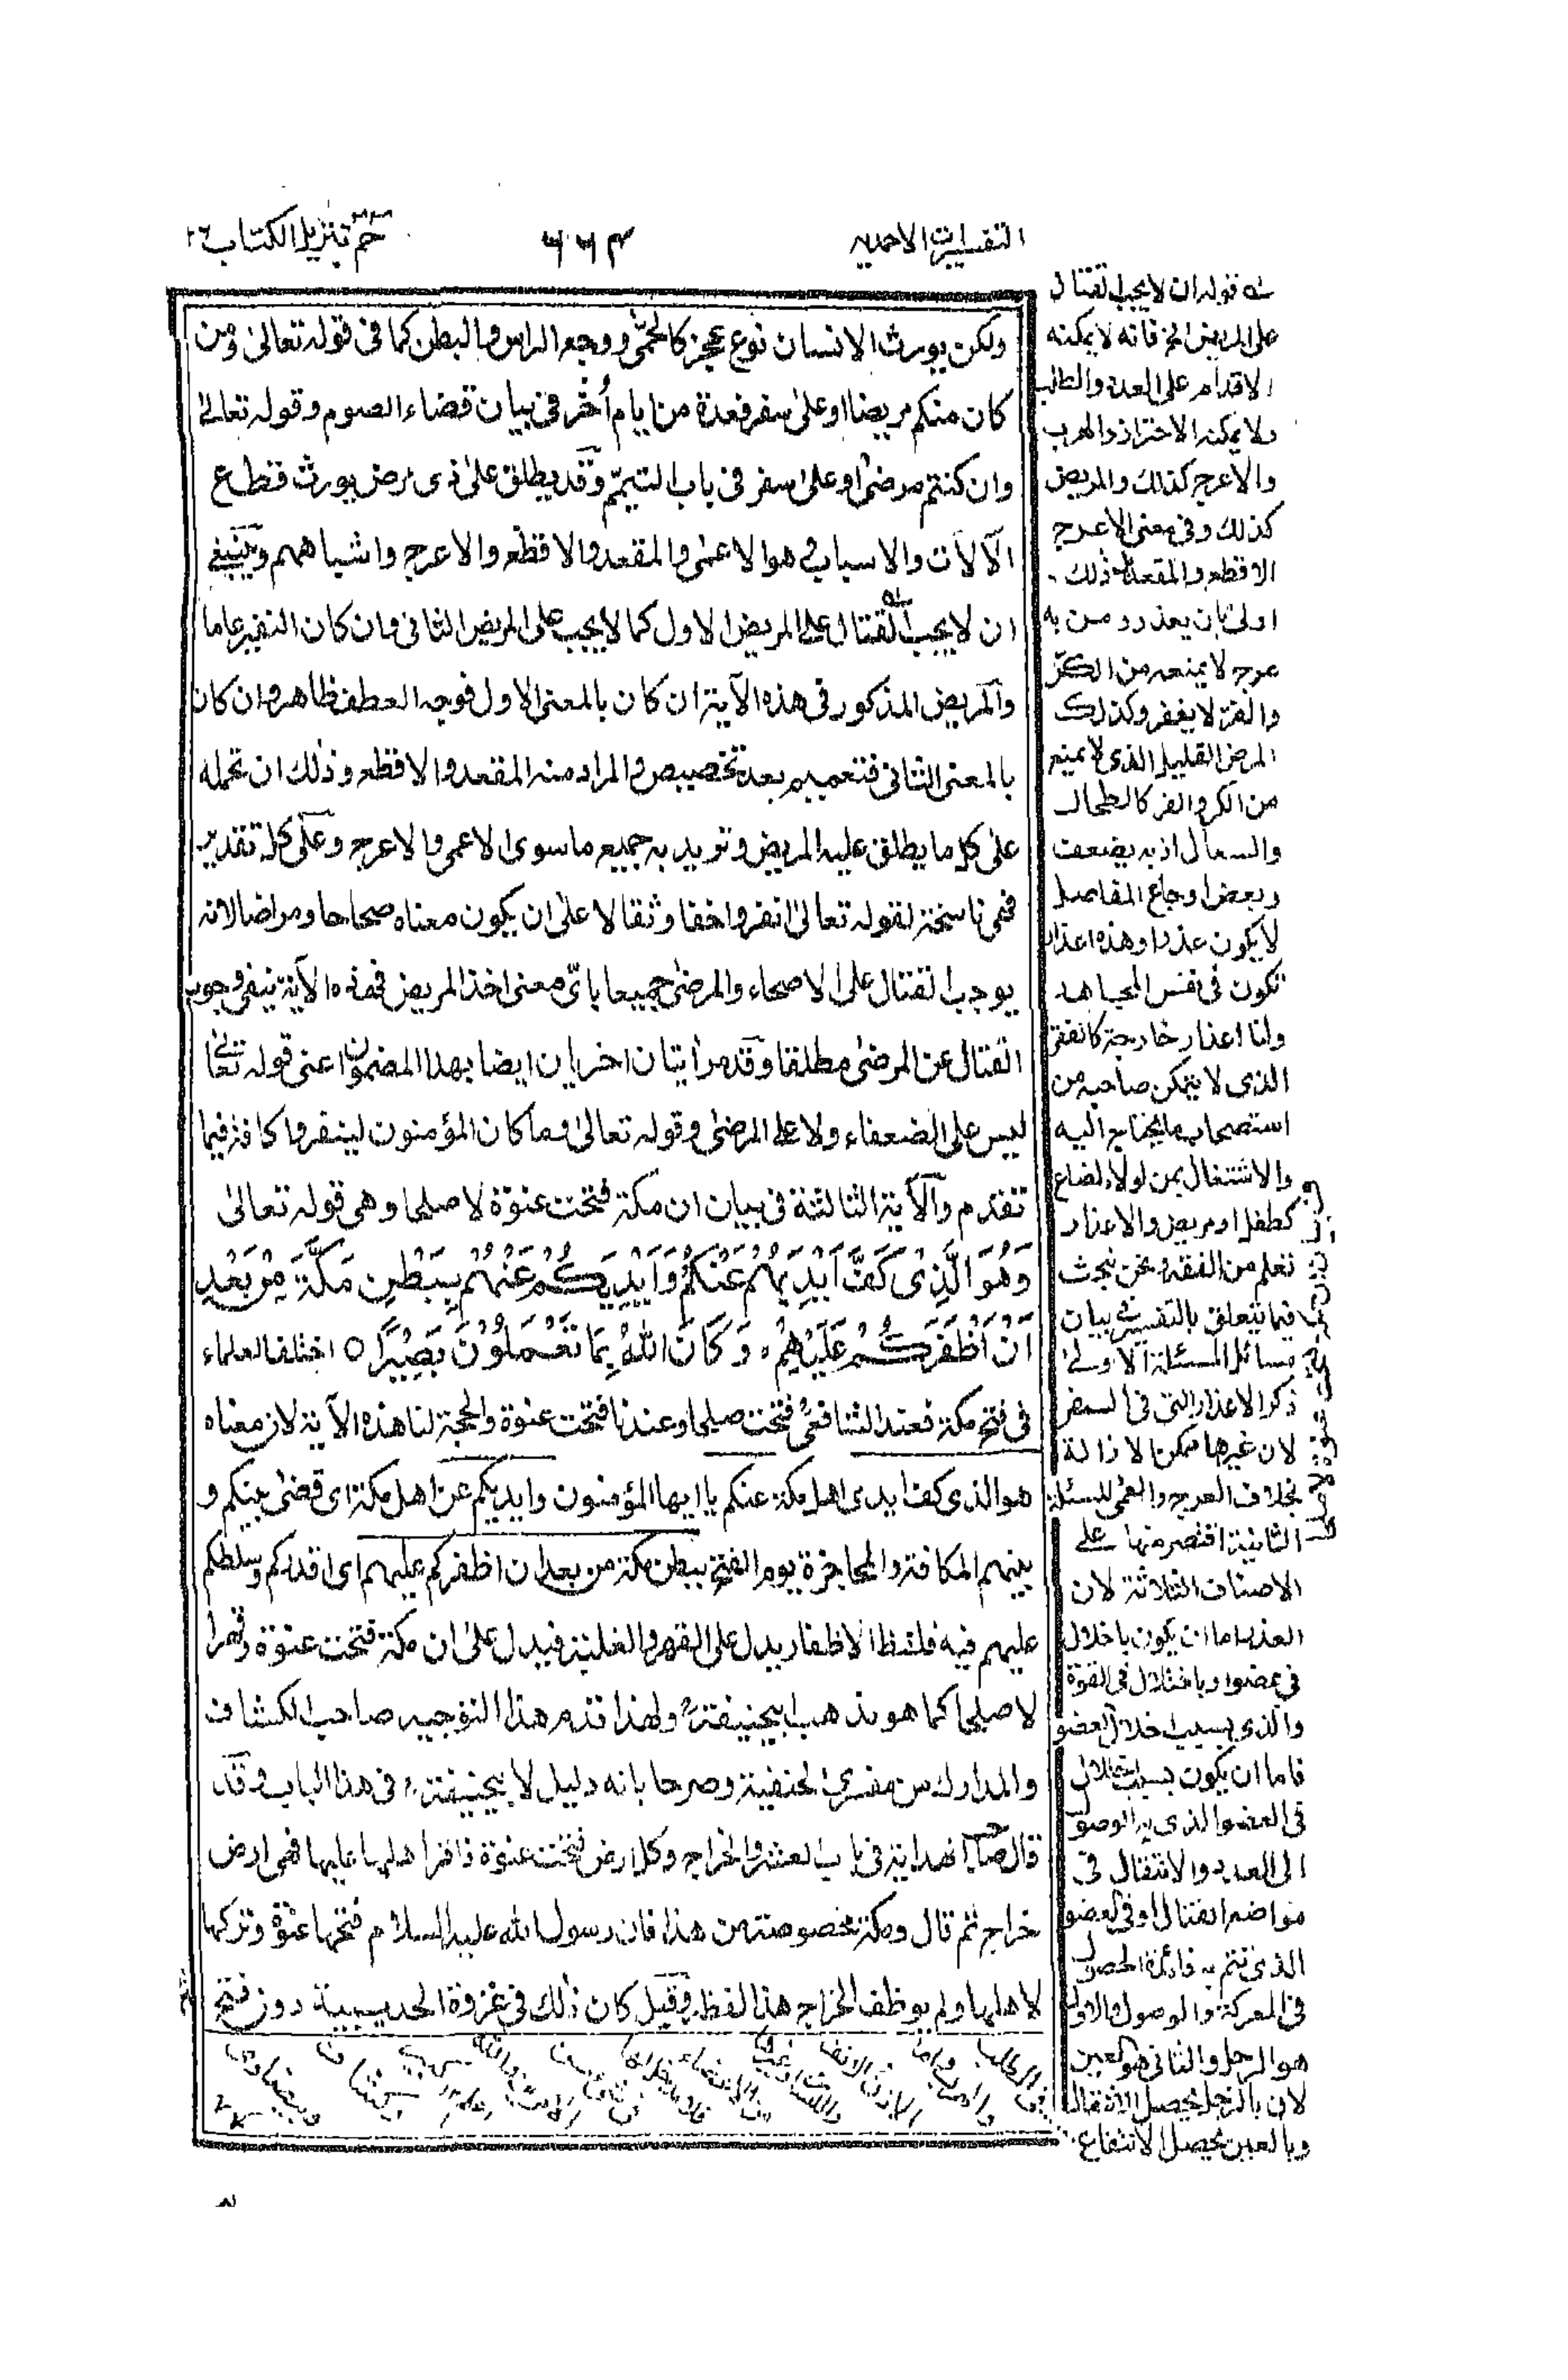 التفسيرات الاحمدية
٦٦٣
حٰم تنزيل الكتاب ٢٦
ولكن يورث الانسان نوع عجز كالحمّى ووجع الراس والبطن كما فى قوله تعالىٰ ومن
كان منكم مريضا او علىٰ سفر فعدة من ايام اُخر فى بيان قضاء الصوم وقوله تعالىٰ
وان كنتم مرضىٰ او علىٰ سفر فى باب التيمّم وقد يطلق علىٰ ذى مرض يورث قطع
الآلات والاسباب وهو الاعمىٰ والمقعد والاقطع والاعرج واشباههم وينبغى
ان لا يجب القتال على المريض الاول كما لا يجب على المريض الثانى وان كان النفير عاما
والمريض المذكور فى هذه الآية ان كان بالمعنى الاول فوجه العطف ظاهر وان كان
بالمعنى الثانى فتعميم بعد تخصيص والمراد منه المقعد والاقطع وذٰلك ان تحمله
علىٰ كل ما يطلق عليه المريض وتريد به جميع ما سوى الاعمى والاعرج وعلىٰ كل تقدير
فهى ناسخة لقوله تعالىٰ انفروا خفافا وثقالا علىٰ ان يكون معناه صحاحا ومراضا لانه
يوجب القتال على الاصحاء والمرضىٰ جميعا باىّ معنى اخذ المريض فهذه الآية ينفى وجوب
القتال عن المرضىٰ مطلقا وقد مر اٰيتان اخريان ايضا بهذا المضمون اعنى قوله تعالىٰ
ليس على الضعفاء ولا على المرضىٰ وقوله تعالىٰ وما كان المؤمنون لينفروا كافة فيما
تقدم والآية الثالثة فى بيان ان مكة فتحت عنوة لا صلحا وهى قوله تعالىٰ
وَهُوَ الَّذِىْ كَفَّ اَيْدِيَهُمْ عَنْكُمْ وَاَيْدِيَكُمْ عَنْهُمْ بِبَطْنِ مَكَّةَ مِنْ بَعْدِ
اَنْ اَظْفَرَكُمْ عَلَيْهِمْ ؕ وَكَانَ اللّٰهُ بِمَا تَعْمَلُوْنَ بَصِيْرًا ○ اختلف العلماء
فى فتح مكة فعند الشافعىؒ فتحت صلحا وعندنا فتحت عنوة والحجة لنا هذه الآية لان معناه
هو الذى كف ايدى اهل مكة عنكم يا ايها المؤمنون وايديكم عن اهل مكة اى قضىٰ بينكم و
بينهم المكافة والمحاجزة يوم الفتح ببطن مكة من بعد ان اظفركم عليهم اى اقدركم وسلطكم
عليهم فيه فلفظ الاظفار يدل على القهر والغلبة فيدل علىٰ ان مكة فتحت عنوة وقهرا
لا صلحا كما هو مذهب ابيحنيفةؒ ولهذا قدم هذا التوجيه صاحب الكشاف
والمدارك من مفسرى الحنفية وصرحا بانه دليل لابيحنيفةؒ فى هذا الباب وقد
قال صاحب الهداية فى باب العشر والخراج وكل ارض فتحت عنوة فاقر اهلها عليها فهى ارض
خراج ثم قال ومكة مخصوصة من هذا فان رسول الله عليه السلام فتحها عنوة وتركها
لاهلها ولم يوظف الخراج هذا لفظه وقيل كان ذٰلك فى غزوة الحديبية دون فتح
له قوله ان لا يجب القتال
على المريض الخ فانه لا يمكنه
الاقدام على العدو والطلب
ولا يمكنه الاحتراز والهرب
والاعرج كذلك والمريض
كذلك وفى معنى الاعرج
الاقطع والمقعد ذلك
اولىٰ بان يعذر ومن به
عرج لا يمنعه من الكرّ
والفرّ لا يغفر وكذلك
المرض القليل الذى لا يمنع
من الكر والفر كالطحال
والسعال اذ به يضعف
وبعض اوجاع المفاصل
لا يكون عذرا وهذه اعذار
تكون فى نفس المجاهد
ولنا اعذار خارجة كالفقر
الذى لا يتمكن صاحبه من
استصحاب ما يحتاج اليه
والاشتغال بمن لولاه لضاع
كطفل او مريض والاعذار
تعلم من الفقه ونحن نبحث
فيما يتعلق بالتفسير فى بيان
مسائل المسئلة الاولىٰ
ذكر الاعذار التى فى السفر
لان غيرها ممكن الازالة
بخلاف العرج والعمى المسئلة
الثانية اقتصر منها على
الاصناف الثلاثة لان
العذر اما ان يكون باخلال
فى عضو او باختلال فى القوة
والذى بسبب اخلال العضو
فاما ان يكون بسبب اختلال
فى العضو الذى به الوصول
الى العدو والانتقال فى
مواضع القتال او فى العضو
الذى تتم به فائدة الحصول
فى المعركة والوصول والاول
هو الرجل والثانى هو العين
لان بالرجل يحصل الانتقال
وبالعين يحصل الانتفاع